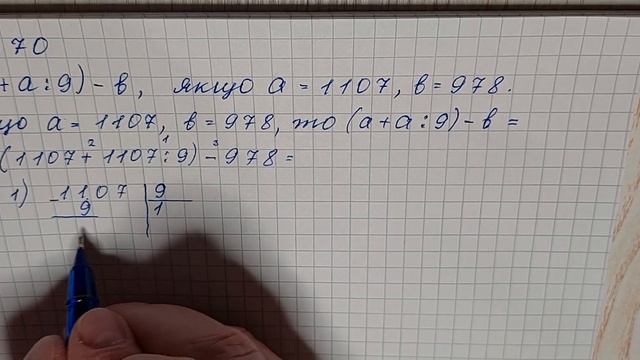 70
+a:9)-в, якщо a=1107, в=978.
що a=1107, в=978, то (a+a:9)-в=
2 1 3
(1107+1107:9)-978=
1) -1107 | 9
9 | 1